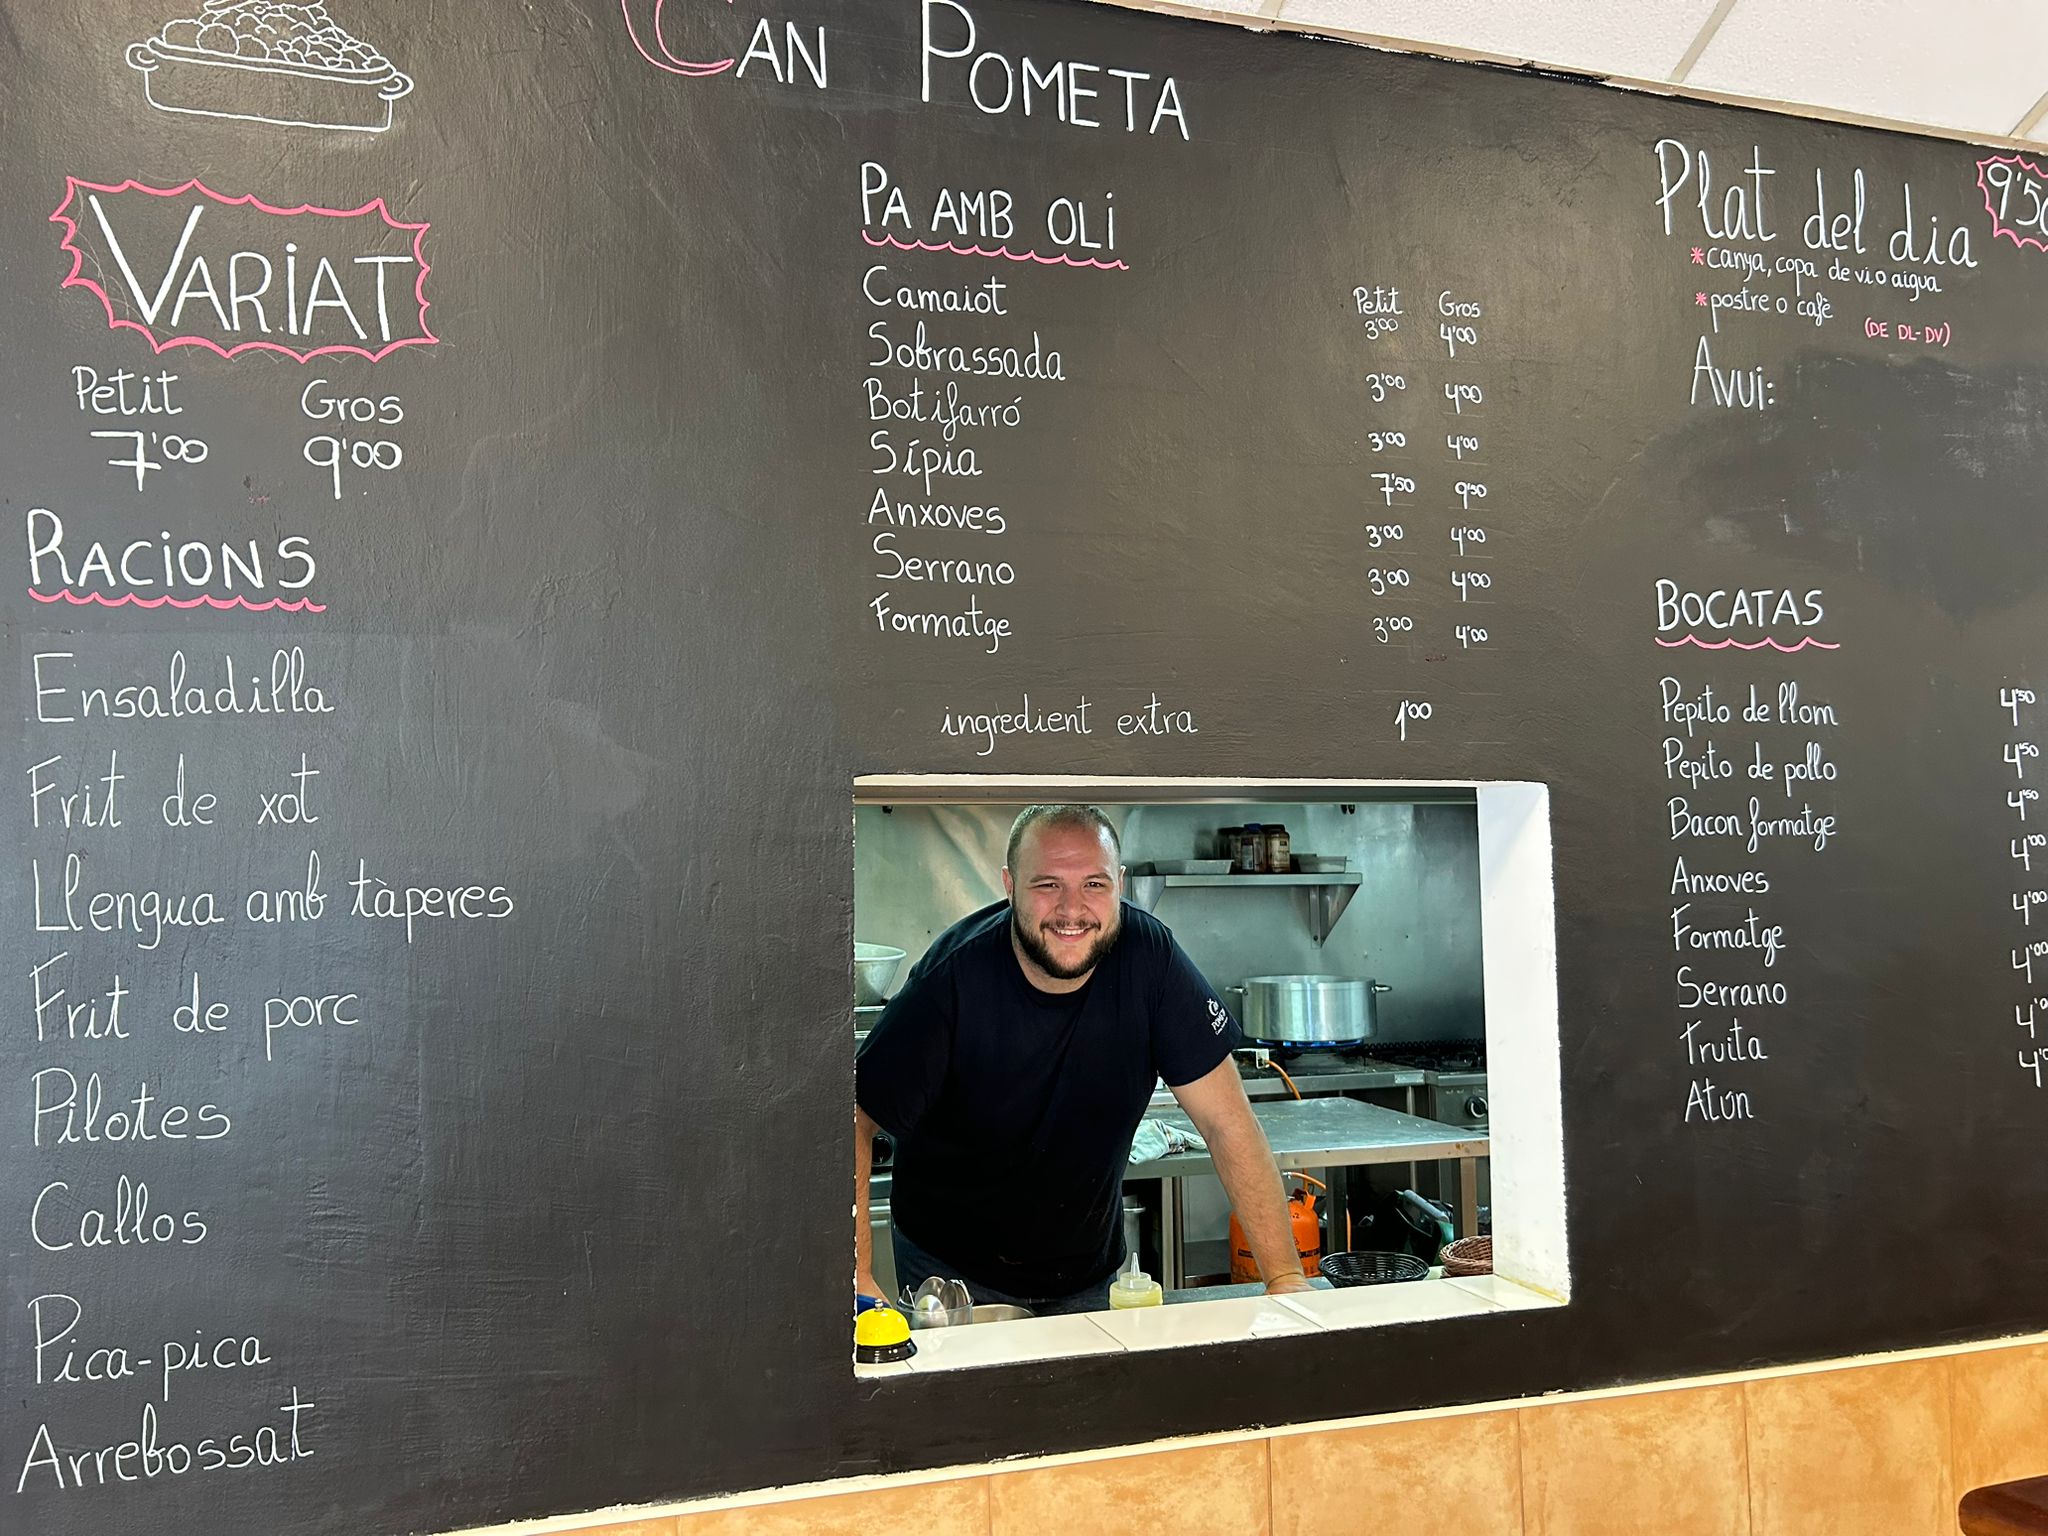 CAN POMETA
VARIAT
Petit Gros
7'00 9'00
RACIONS
Ensaladilla
Frit de xot
Llengua amb tàperes
Frit de porc
Pilotes
Callos
Pica-pica
Arrebossat
PA AMB OLI
Petit Gros
Camaiot 3'00 4'00
Sobrassada 3'00 4'00
Botifarró 3'00 4'00
Sípia 7'50 9'50
Anxoves 3'00 4'00
Serrano 3'00 4'00
Formatge 3'00 4'00
ingredient extra 1'00
Plat del dia 9'50
*canya, copa de vi o aigua
*postre o cafè
(DE DL-DV)
AVUI:
BOCATAS
Pepito de llom 4'50
Pepito de pollo 4'50
Bacon formatge 4'50
Anxoves 4'00
Formatge 4'00
Serrano 4'00
Truita 4'00
Atún 4'00